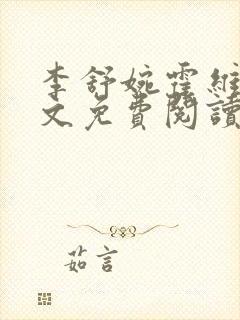 李舒婉霍維
文免費閱讀
茹言